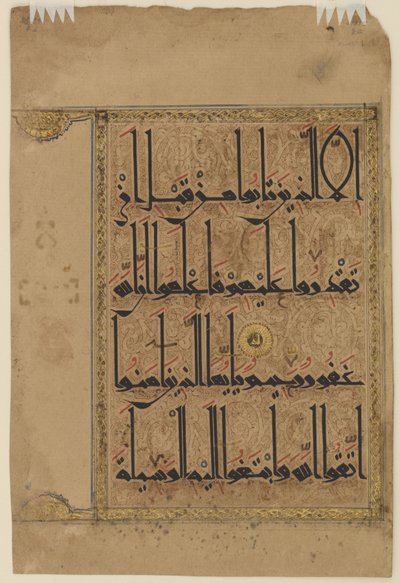 الا الذين تابوا من قبل ان
تقدروا عليهم فاعلموا ان الله
غفور رحيم يايها الذين امنوا
اتقوا الله وابتغوا اليه الوسيلة